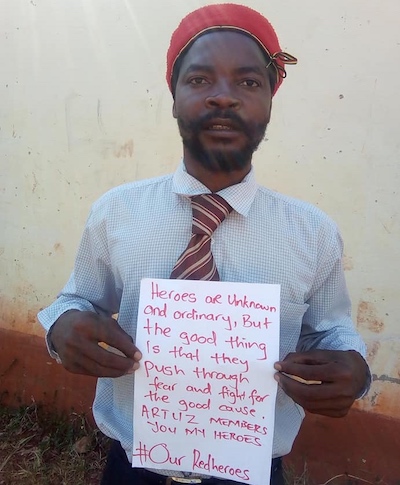 Heroes are Unknown
and ordinary, But
the good thing
Is that they
push through
fear and fight for
the good cause.
ARTUZ MEMBERS
YOU MY HEROES
#Our Redheroes